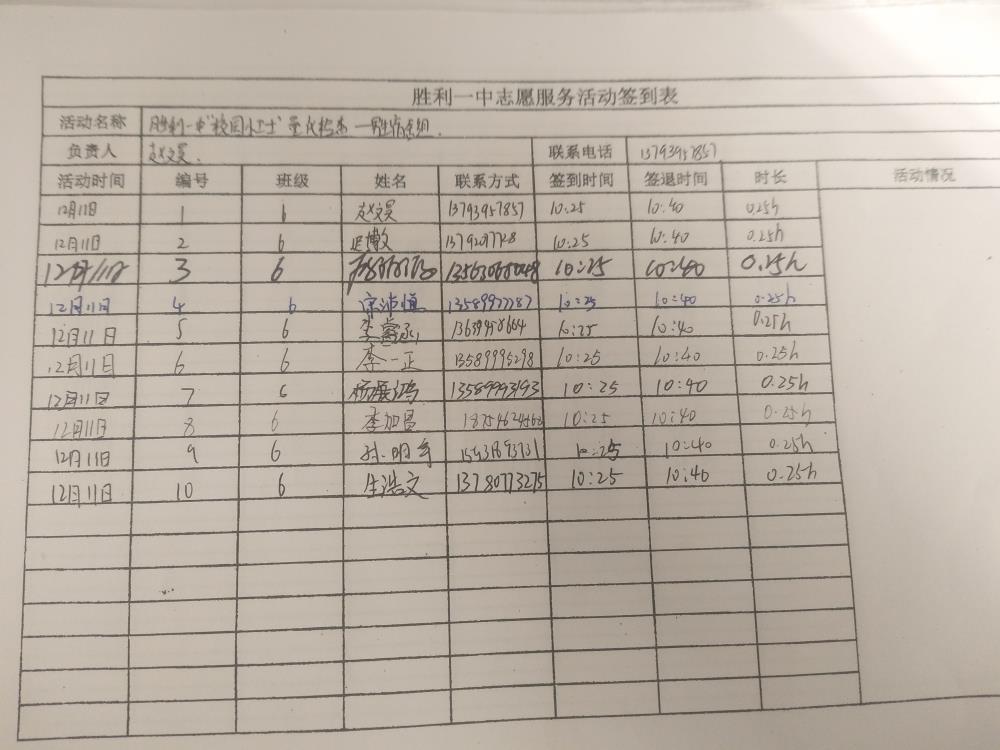 胜利一中志愿服务活动签到表
活动名称 胜利一中"校园卫士"
负责人 赵文昊. 联系电话 13793957857
活动时间 编号 班级 姓名 联系方式 签到时间 签退时间 时长 活动情况
12月11日 1 6 赵文昊 13793957857 10:25 10:40 0.25h
12月11日 2 6 10:25 10:40 0.25h
12月11日 3 6 10:25 10:40 0.25h
12月11日 4 6 宗沛恒 10:25 10:40 0.25h
12月11日 5 6 10:25 10:40 0.25h
12月11日 6 6 李一正 13589995298 10:25 10:40 0.25h
12月11日 7 6 13589993193 10:25 10:40 0.25h
12月11日 8 6 李加昌 18754624562 10:25 10:40 0.25h
12月11日 9 6 10:25 10:40 0.25h
12月11日 10 6 生浩文 13780773275 10:25 10:40 0.25h